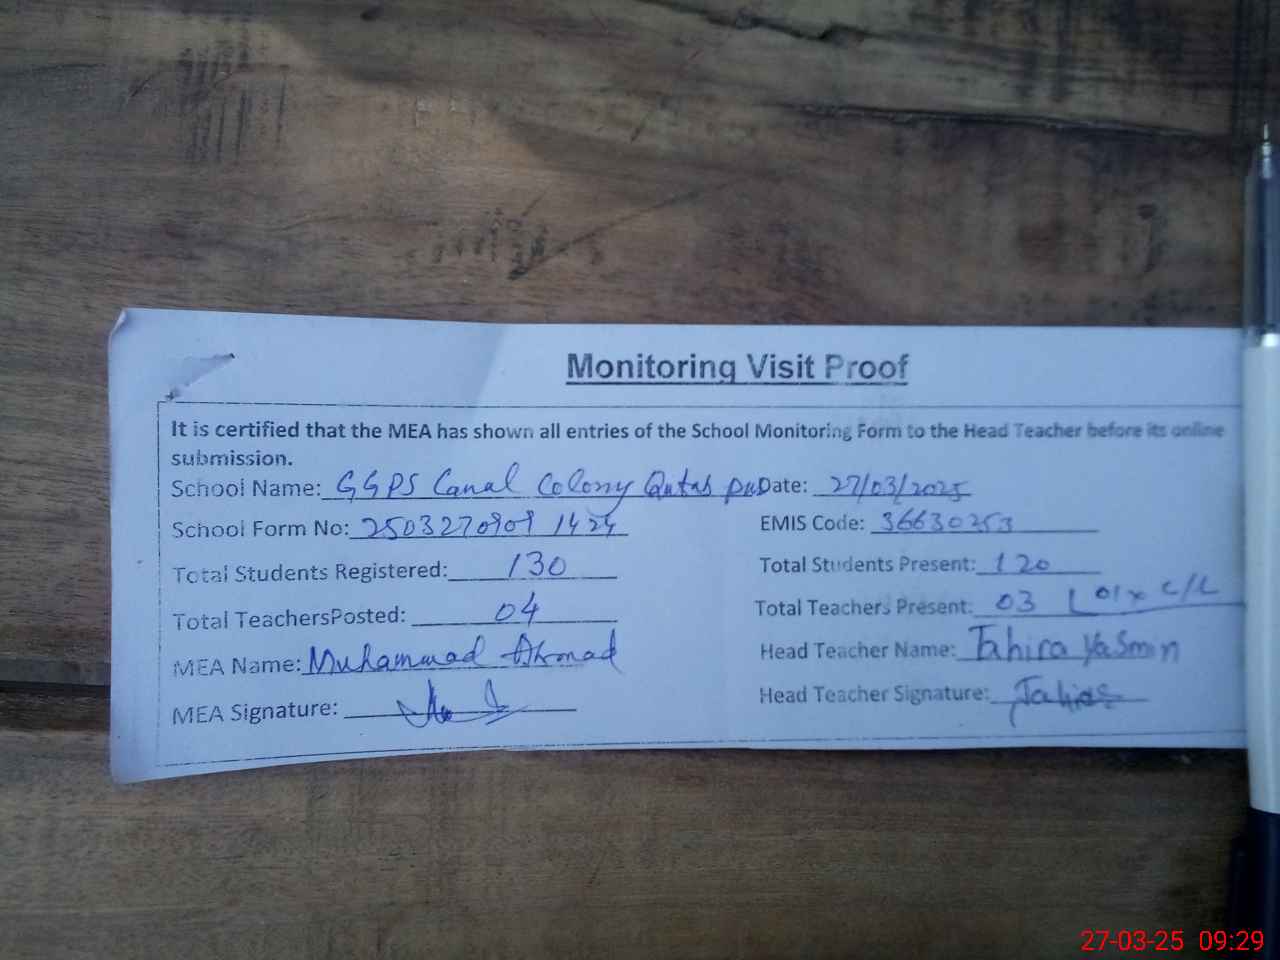 Monitoring Visit Proof
It is certified that the MEA has shown all entries of the School Monitoring Form to the Head Teacher before its online
submission.
School Name: GGPS Canal Colony Qutab pur Date: 27/03/2025
School Form No: 2503270909 1424 EMIS Code: 36630253
Total Students Registered: 130 Total Students Present: 120
Total TeachersPosted: 04 Total Teachers Present: 03 01x C/L
MEA Name: Muhammad Ahmad Head Teacher Name: Tahira Yasmin
MEA Signature: Head Teacher Signature: Tahira
27-03-25 09:29